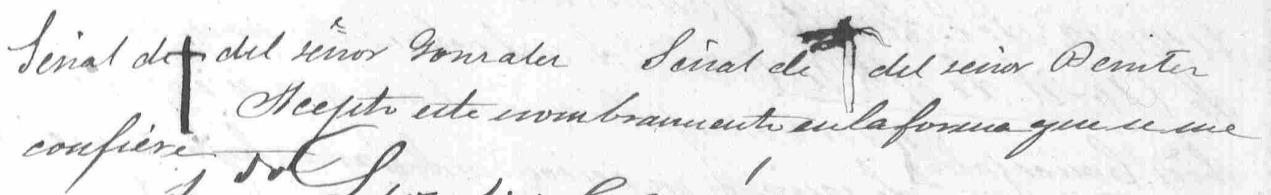 Señal de † del señor Gonzalez Señal de † del señor Benitez
Acepto este nombramiento en la forma que se me
confiere